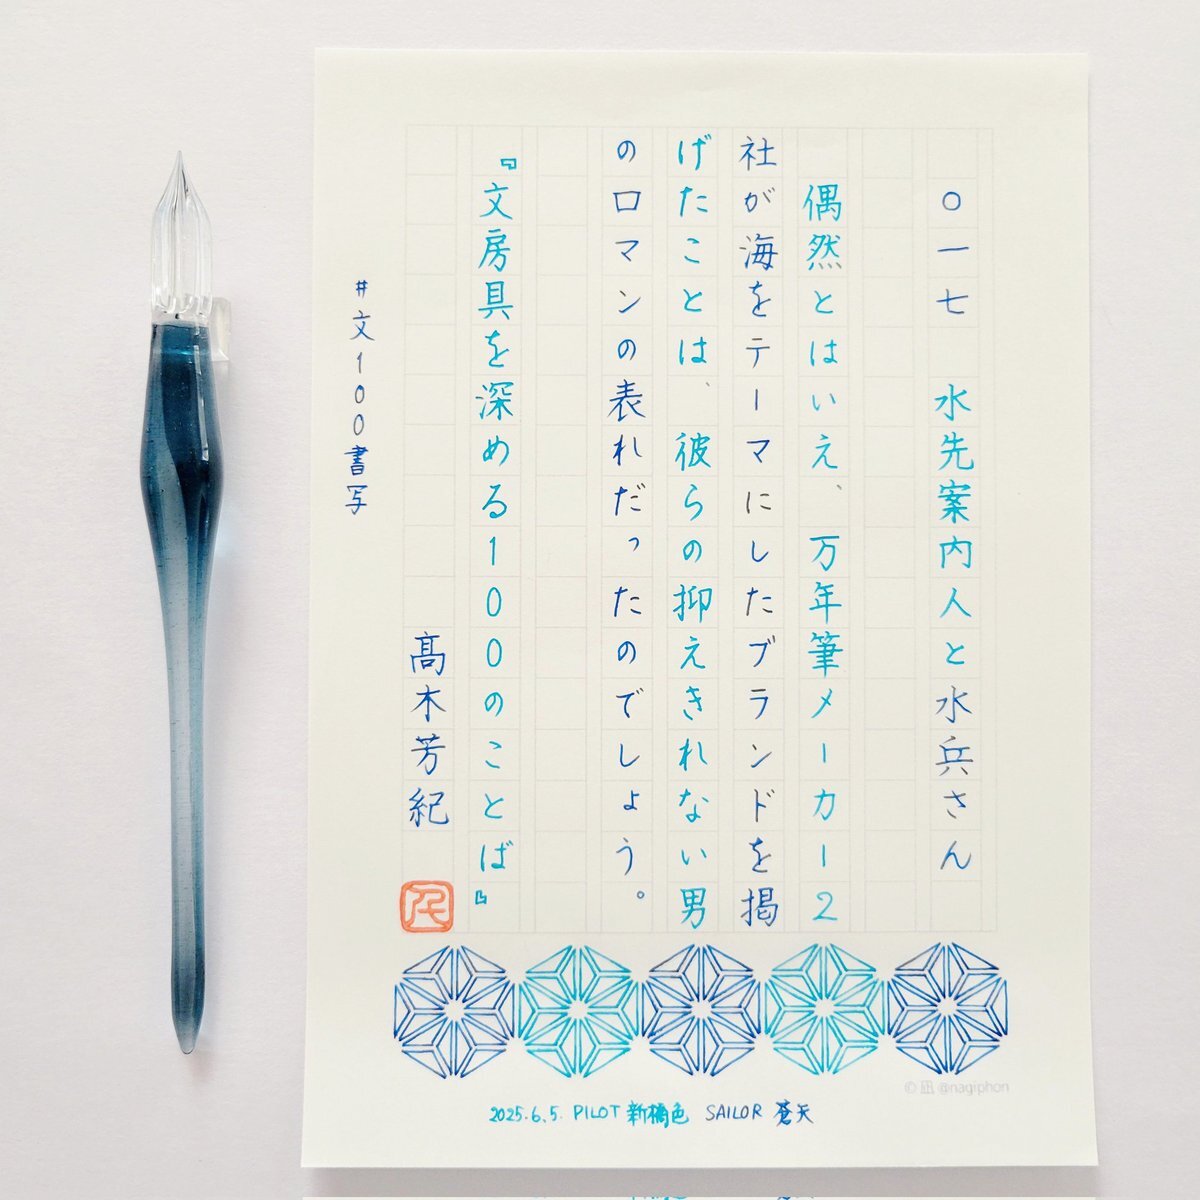 〇一七　水先案内人と水兵さん
偶然とはいえ、万年筆メーカー2
社が海をテーマにしたブランドを掲
げたことは、彼らの抑えきれない男
のロマンの表れだったのでしょう。
『文房具を深める100のことば』
髙木芳紀
#文100書写
© 凪 @nagiphon
2025.6.5. PILOT 新橋色 SAILOR 蒼天